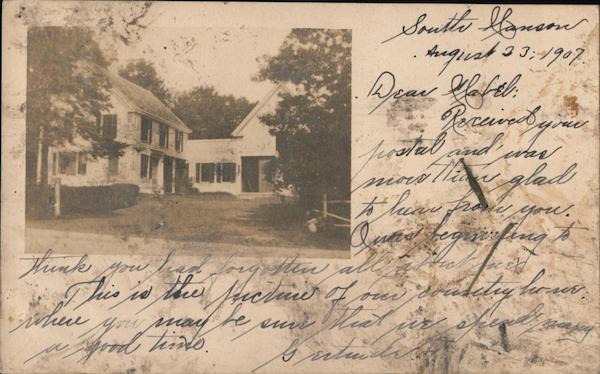 South Hanson
August 23, 1907
Dear Mabel:
Received your
postal and was
more than glad
to hear from you.
I was beginning to
think you had forgotten all about me
This is the picture of our country home
where you may be sure that we spend many
a good time.
Gertrude